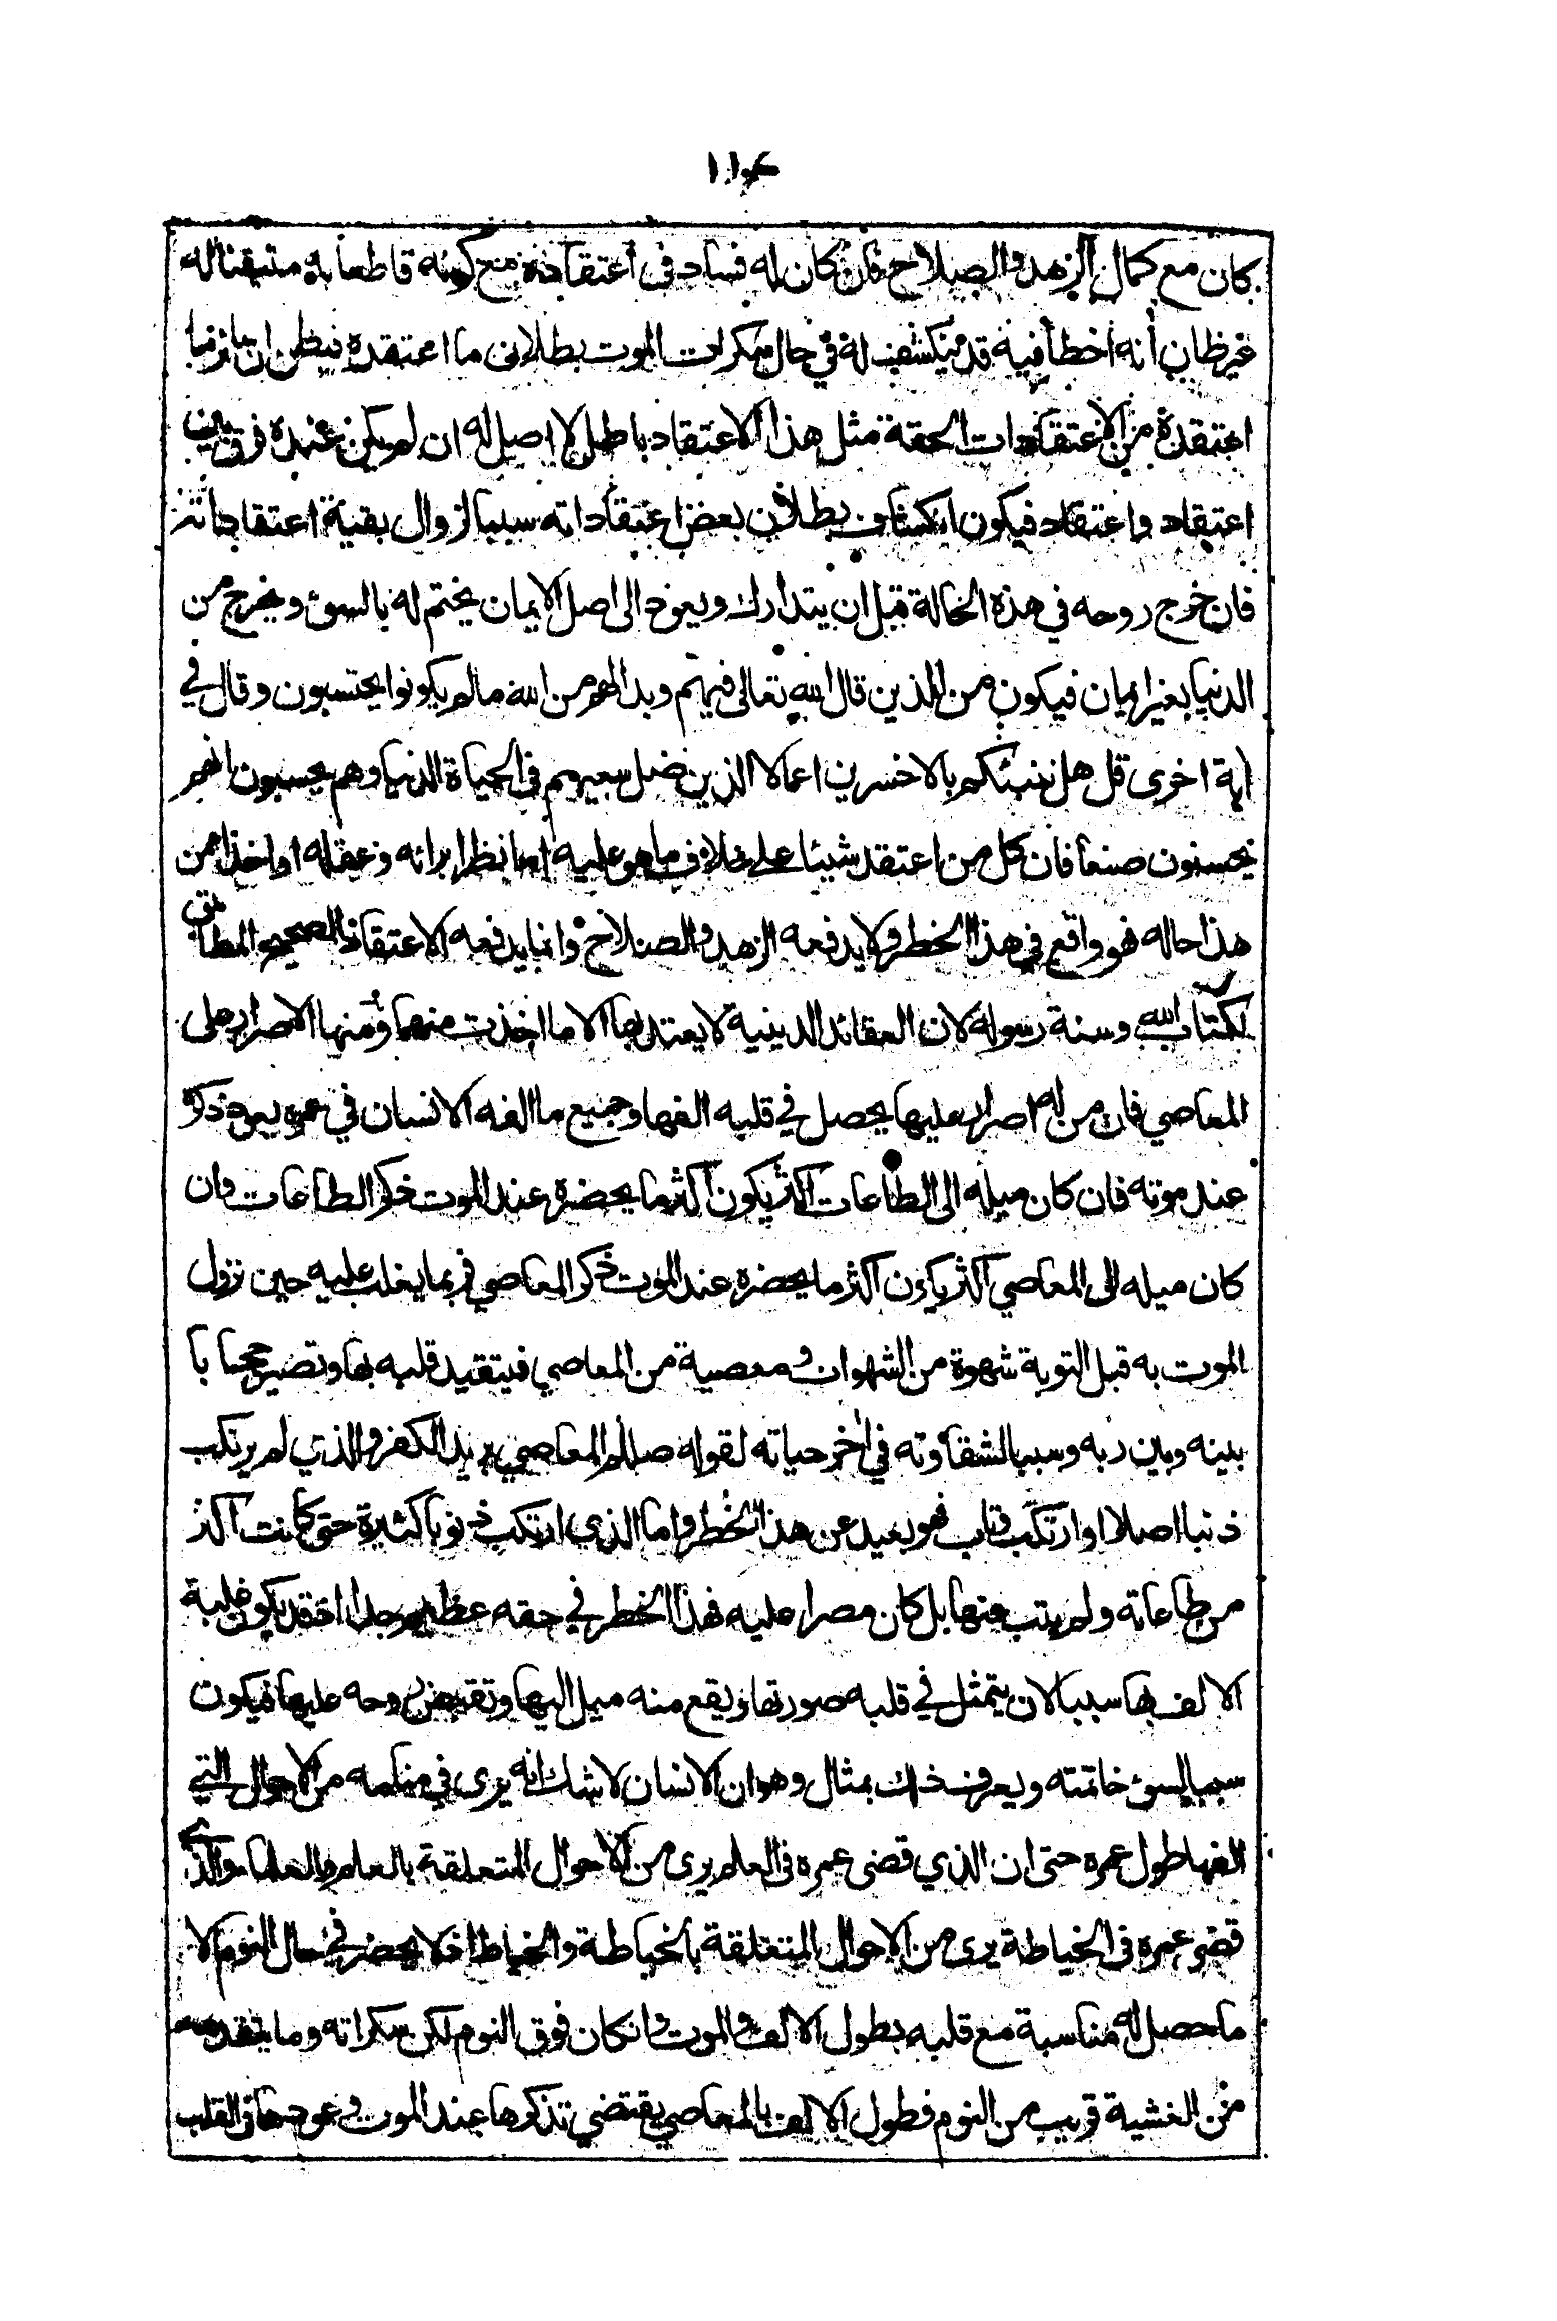 ١١٤
كان مع كمال الزهد والصلاح فان كان له فساد في اعتقاده مع كونه قاطعا به متيقنا له
غير ظان أنه اخطأ فيه قد ينكشف له في حال سكرات الموت بطلان ما اعتقده فيظن ان سائر ما
اعتقده من الاعتقادات الحقة مثل هذا الاعتقاد باطل لا اصل له ان لم يكن عنده فرق بين
اعتقاد واعتقاد فيكون انكشاف بطلان بعض اعتقاداته سببا لزوال بقية اعتقاداته
فان خرج روحه في هذه الحالة قبل ان يتدارك ويعود الى اصل الايمان يختم له بالسوء ويخرج من
الدنيا بغير ايمان فيكون من الذين قال الله تعالى فيهم وبدا لهم من الله ما لم يكونوا يحتسبون وقال في
اية اخرى قل هل ننبئكم بالاخسرين اعمالا الذين ضل سعيهم في الحياة الدنيا وهم يحسبون انهم
يحسنون صنعا فان كل من اعتقد شيئا على خلاف ما هو عليه اما نظرا برايه وعقله او اخذا من
هذا حاله فهو واقع في هذا الخطر ولا يدفعه الزهد والصلاح وانما يدفعه الاعتقاد الصحيح المطابق
لكتاب الله وسنة رسوله لان العقائد الدينية لا يعتد بها الا ما اخذت منهما ومنها الاصرار على
المعاصي فان من له اصرار عليها يحصل في قلبه الفها وجميع ما الفه الانسان في عمره يعود ذكره
عند موته فان كان ميله الى الطاعات اكثر يكون اكثر ما يحضره عند الموت ذكر الطاعات وان
كان ميله الى المعاصي اكثر يكون اكثر ما يحضره عند الموت ذكر المعاصي فربما يغلب عليه حين نزول
الموت به قبل التوبة شهوة من الشهوات ومعصية من المعاصي فيتقيد قلبه بها وتصير حجابا
بينه وبين ربه وسببا لشقاوته في اخر حياته لقوله صلعم المعاصي بريد الكفر والذي لم يرتكب
ذنبا اصلا او ارتكب وتاب فهو بعيد عن هذا الخطر واما الذي ارتكب ذنوبا كثيرة حتى كانت اكثر
من طاعاته ولم يتب عنها بل كان مصرا عليه فهذا الخطر في حقه عظيم جدا اذ قد يكون غلبة
الالف بها سببا لان يتمثل في قلبه صورتها ويقع منه ميل اليها وتقبض روحه عليها فيكون
سببا لسوء خاتمته ويعرف ذلك بمثال وهو ان الانسان لا شك انه يرى في منامه من الاحوال التي
الفها طول عمره حتى ان الذي قضى عمره في العلم يرى من الاحوال المتعلقة بالعلم والعلماء والذي
قضى عمره في الخياطة يرى من الاحوال المتعلقة بالخياطة والخياط اذ لا يحضر في حال النوم الا
ما حصل له مناسبة مع قلبه بطول الالف والموت وان كان فوق النوم لكن سكراته وما يتقدمه
من الغشية قريب من النوم فطول الالف بالمعاصي يقتضي تذكرها عند الموت وعودها في القلب